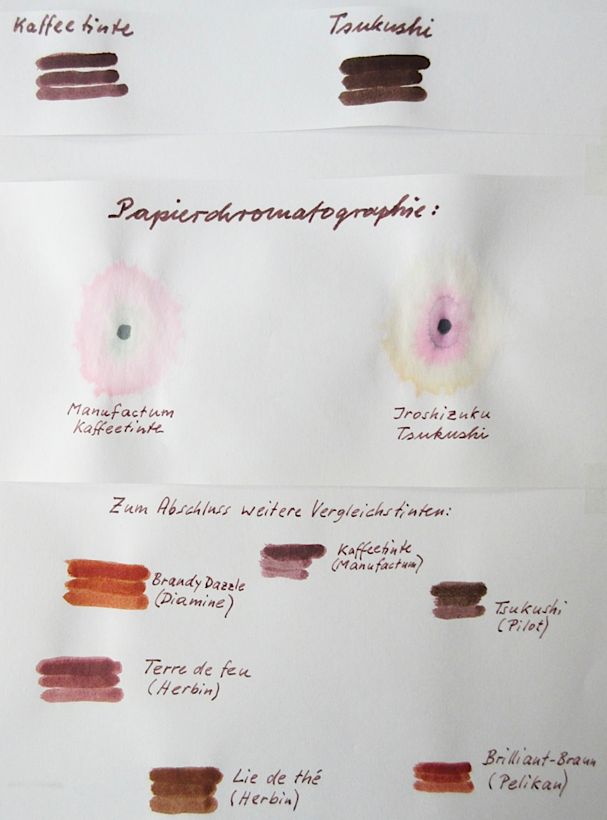 Kaffeetinte
Tsukushi
Papierchromatographie:
Manufactum
Kaffeetinte
Iroshizuku
Tsukushi
Zum Abschluss weitere Vergleichstinten:
Kaffeetinte
(Manufactum)
Brandy Dazzle
(Diamine)
Tsukushi
(Pilot)
Terre de feu
(Herbin)
Lie de thé
(Herbin)
Brilliant-Braun
(Pelikan)